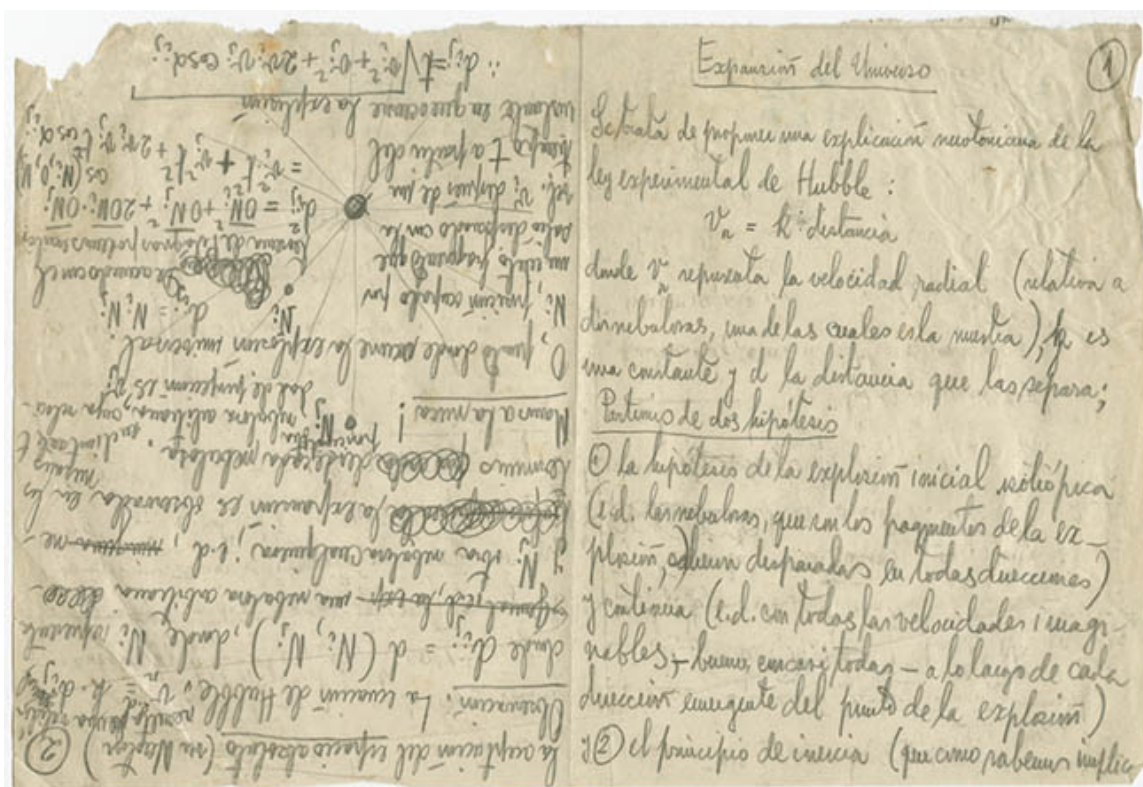 Expansión del Universo
1
Se trata de proponer una explicación newtoniana de la
ley experimental de Hubble:
vᵣ = k · distancia
donde vᵣ representa la velocidad radial (relativa a
dos nebulosas, una de las cuales es la nuestra), k es
una constante y d la distancia que las separa;
Partimos de dos hipótesis
① la hipótesis de la explosión inicial isotrópica
(i.d. las nebulosas, que son los fragmentos de la ex-
plosión, salieron disparadas en todas direcciones)
y continua (i.d. con todas las velocidades imagi-
nables, – bueno, en casi todas – a lo largo de cada
dirección emergente del punto de la explosión)
y ② el principio de inercia (que como sabemos implic
2
la aceptación del espacio absoluto (su Newton)
Observación: La ecuación de Hubble,
donde dᵢⱼ = d(Nᵢ, Nⱼ), donde Nᵢ representa
una nebulosa arbitraria
y Nⱼ otra nebulosa cualquiera; i.d.,
la expansión es observada en los mismos
términos desde cada nebulosa
Manos a la
O, punto donde ocurre la explosión universal.
Nᵢ, posición ocupada por
un cierto fragmento que
salió disparado con la
vel. vᵢ después de un
tiempo t a partir del
instante en que ocurre la explosión
Nⱼ
nebulosa arbitraria, cuya velo-
cidad de proyección es vⱼ
Nᵢ
dᵢⱼ = NᵢNⱼ
De acuerdo con el
teorema de Pitágoras
dᵢⱼ² = ONᵢ² + ONⱼ² + 2ONᵢ·ONⱼ·
cos(Nᵢ,O,Nⱼ)
= vᵢ² t² + vⱼ² t² + 2vᵢvⱼ t² cos αᵢⱼ
∴ dᵢⱼ = t√vᵢ² + vⱼ² + 2vᵢvⱼ cos αᵢⱼ